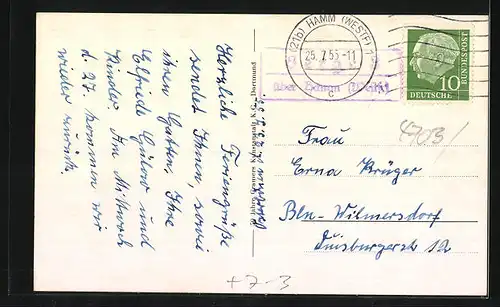 Herzliche Feriengrüße
sendet Ihnen, sowie
ihrem Gatten, Ihre
Elfride Gülow und
Kinder. Am Mittwoch
d. 27. kommen wir
wieder zurück.
(21b) HAMM (WESTF) 1
25.7.55-11
c
über Hamm (Westf)
10
DEUTSCHE
BUNDESPOST
4703/
Frau
Erna Krüger
Bln-Wilmersdorf
Duisburgerstr 12
+7-3